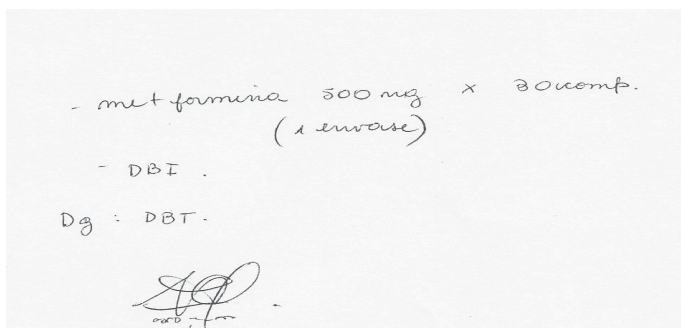 - metformina 500 mg x 30 comp.
(1 envase)
- DBI.
Dg : DBT.